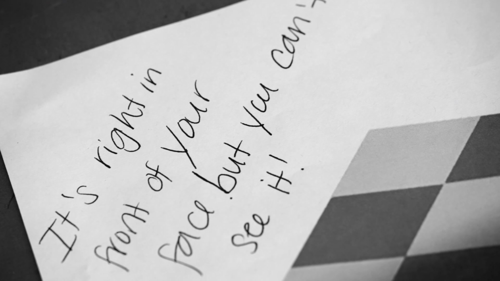 It's right in
front of your
face but you can't
see it!